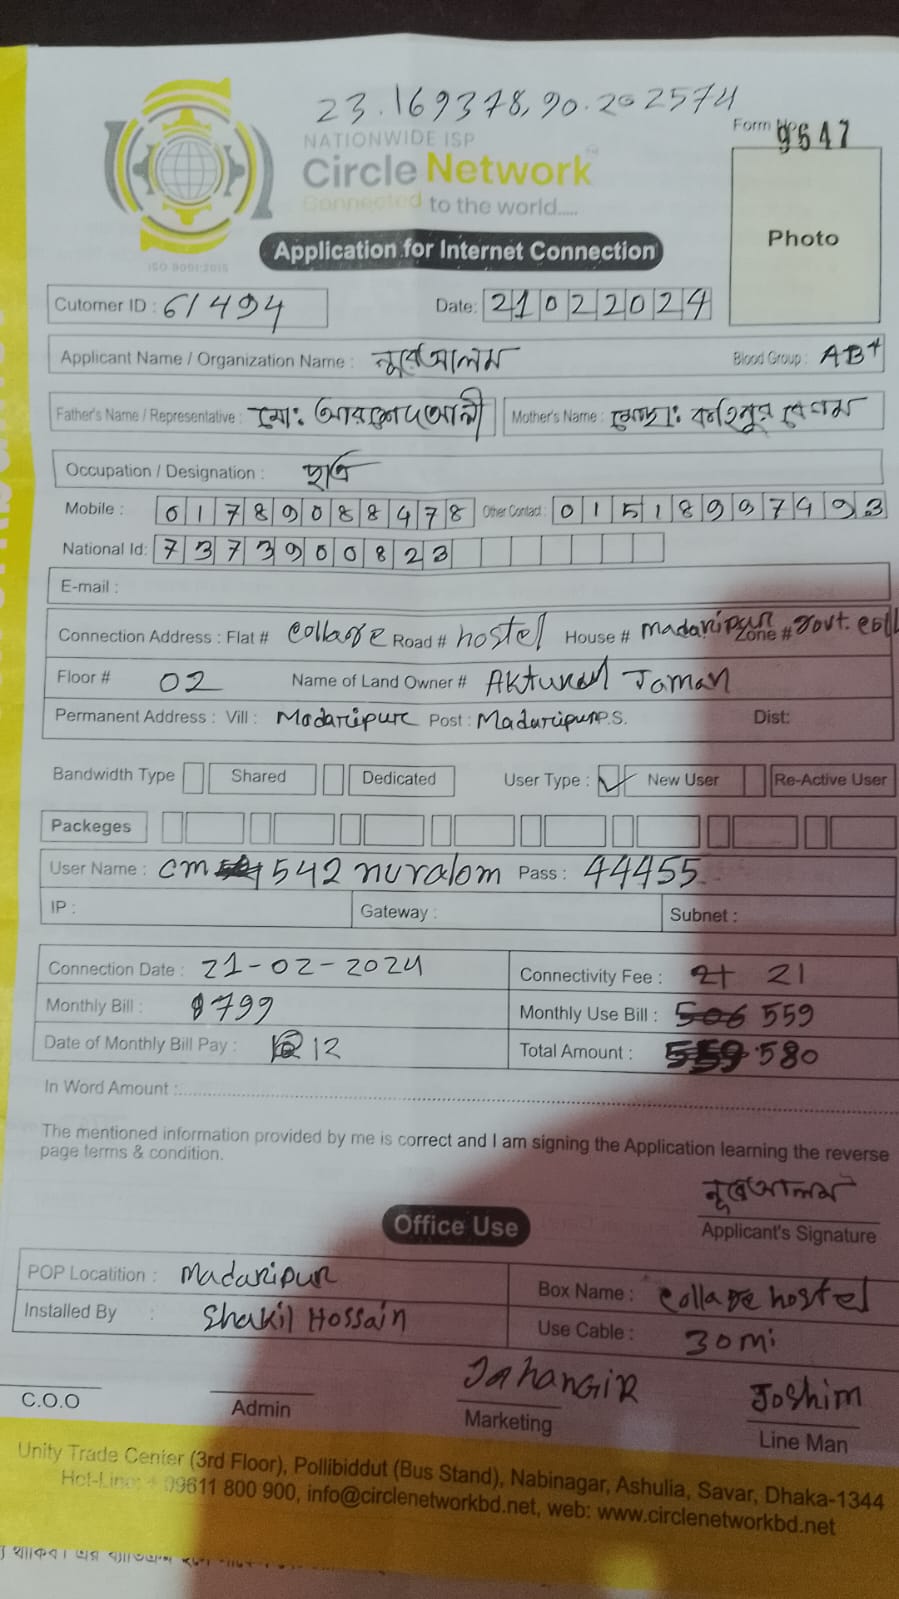 23.169378, 90.202574
NATIONWIDE ISP
Circle Network
Connected to the world.....
Form No 9647
Photo
ISO 9001:2015
Application for Internet Connection
Cutomer ID : 61494 Date: 21022024
Applicant Name / Organization Name : নুরে আলম Blood Group : AB+
Father's Name / Representative : মো: আরশেদ আলী Mother's Name : মোছা: বেগম
Occupation / Designation : ছাত্র
Mobile : 01789088478 Other Contact : 01518997493
National Id: 7373900823
E-mail :
Connection Address : Flat # collage Road # hostel House # madaripur Zone # Govt. coll
Floor # 02 Name of Land Owner # Jaman
Permanent Address : Vill : Madaripur Post : Madaripur P.S. Dist:
Bandwidth Type Shared Dedicated User Type : ✓ New User Re-Active User
Packeges
User Name : cm 542 nuralom Pass : 44455
IP : Gateway : Subnet :
Connection Date : 21-02-2024 Connectivity Fee : 21
Monthly Bill : 799 Monthly Use Bill : 506 559
Date of Monthly Bill Pay : 12 Total Amount : 559 580
In Word Amount :
The mentioned information provided by me is correct and I am signing the Application learning the reverse
page terms & condition.
নুরে আলম
Applicant's Signature
Office Use
POP Locatition : Madaripur Box Name : collage hostel
Installed By : Shakil Hossain Use Cable : 30 mi
Jahangir Joshim
C.O.O Admin Marketing Line Man
Unity Trade Center (3rd Floor), Pollibiddut (Bus Stand), Nabinagar, Ashulia, Savar, Dhaka-1344
Hot-Line: + 09611 800 900, info@circlenetworkbd.net, web: www.circlenetworkbd.net